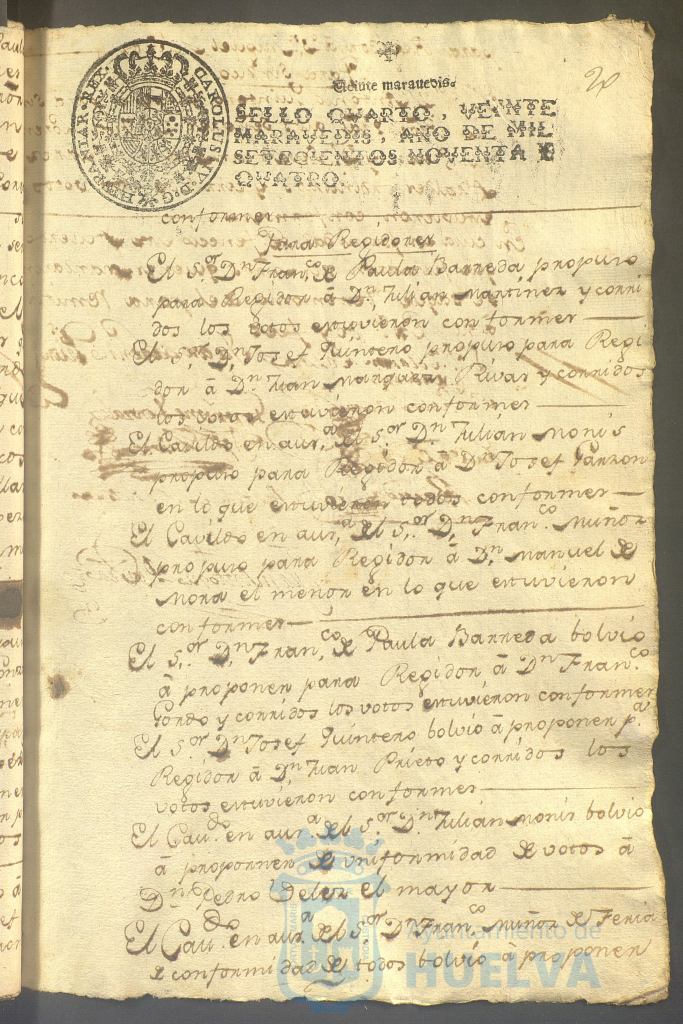 20
Veinte maravedis.
SELLO QVARTO, VEINTE
MARAVEDIS, AÑO DE MIL
SETECIENTOS NOVENTA Y
QVATRO.
CAROLUS IV D G HISPANIAR REX
conformes
Para Regidores
El S.or Dn. Fran.co de Paula Barreda, propuso
para Regidor â Dn. Julián Martinez y corri
dos los votos estuvieron conformes
El S.or Dn. Josef Quintero propuso para Regi
dor â Dn Juan Marquez, Rivas y corridos
los votos estuvieron conformes
El Cavildo en aus.a del S.or Dn. Julián Monis
propuso para Regidor â Dn Josef Garzon
en lo que estuvieron todos conformes
El Cavildo en aus.a del S.or Dn. Fran.co Muñoz
propuso para Regidor â Dn. Manuel de
Mora el menor en lo que estuvieron
conformes
El S.or Dn. Fran.co de Paula Barreda bolvio
â proponer para Regidor, â Dn Fran.co
Gordo y corridos los votos estuvieron conformes
El S.or Dn Josef Quintero bolvio â proponer p.a
Regidor â Dn Juan Prieto y corridos los
votos estuvieron conformes
El Cav.do en aus.a del S.or Dn Julián Monis bolvio
â proponner de uniformidad de votos â
Dn. Pedro el mayor
El Cav.do en aus.a del S.or Dn Fran.co Muñoz de Feria
de conformidad de todos bolvio â proponer
Ayuntamiento de
HUELVA